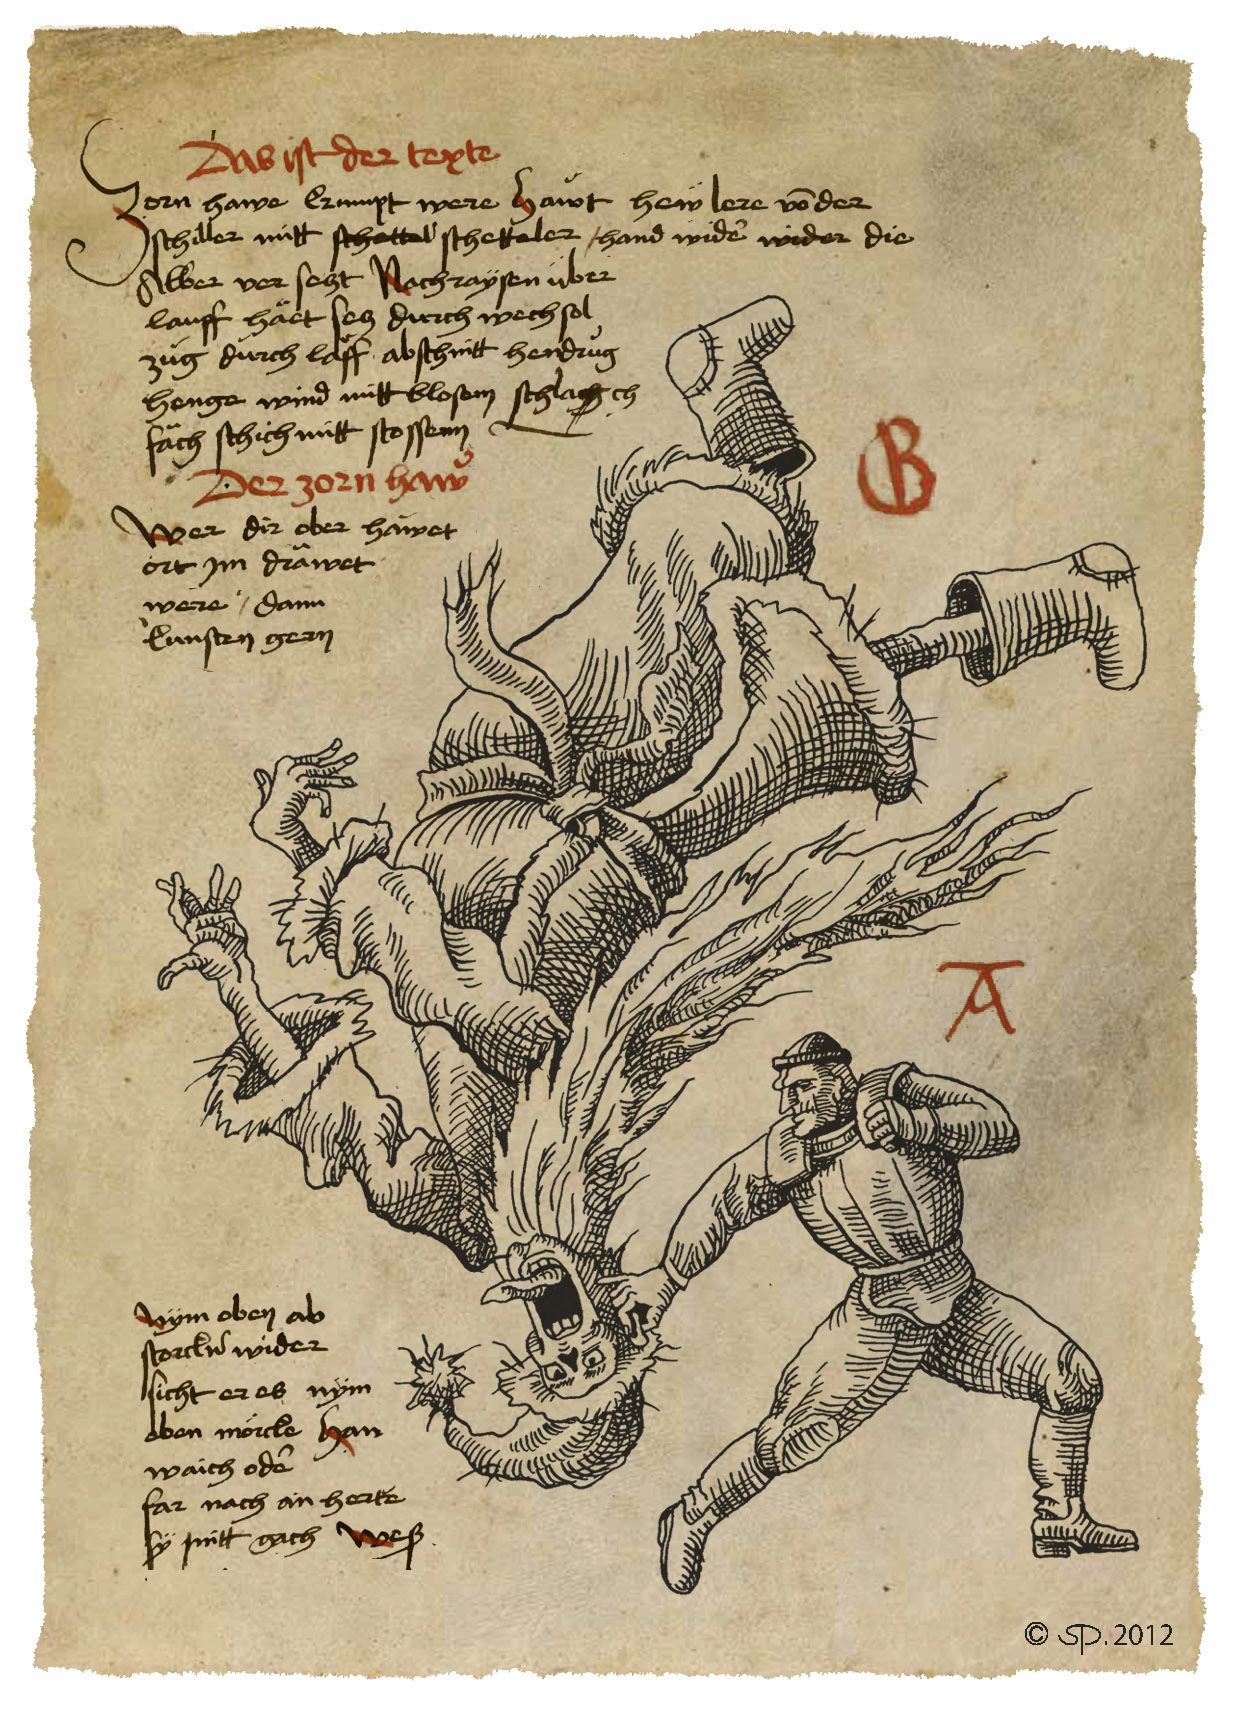 Das ist der texte
Zorn hawe krumpt were hawt hew lere vō der
schiller mitt schettel scheteler / hand widẽ wider die
Alber ver setzt Nachraÿsen über
lauff häet setz durch wechsol
züg dürch laff abschnitt hendrug
henge wind mitt blosem schlach ch
fäch schich mitt stossenn
Der zorn haw
Wer dir ober häwet
ort jm dräwet
were / dann
kunsten gern
B
A
Nÿm oben ab
storck wider
sicht er es nÿm
oben mörcke Han
waich odẽ
far nach an herte
sÿ mitt gach Weß
© SP. 2012